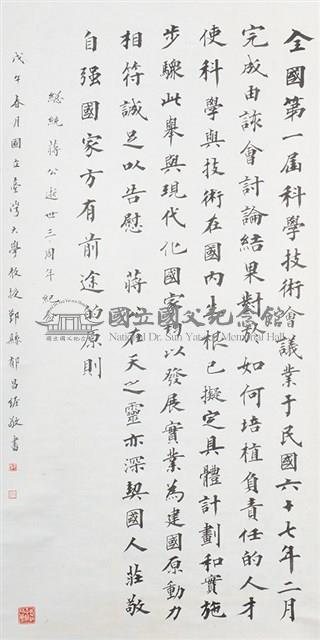 全國第一屆科學技術會議業于民國六十七年二月
完成由該會討論結果對於如何培植負責任的人才
使科學與技術在國內生根已擬定具體計劃和實施
步驟此舉與現代化國家以發展實業為建國原動力
相符誠足以告慰 蔣公在天之靈亦深契國人莊敬
自强國家方有前途的原則
總統 蔣公逝世三周年紀念
戊午春月國立臺灣大學教授鄞縣郁昌經敬書
國立國父紀念館
National Dr. Sun Yat-sen Memorial Hall